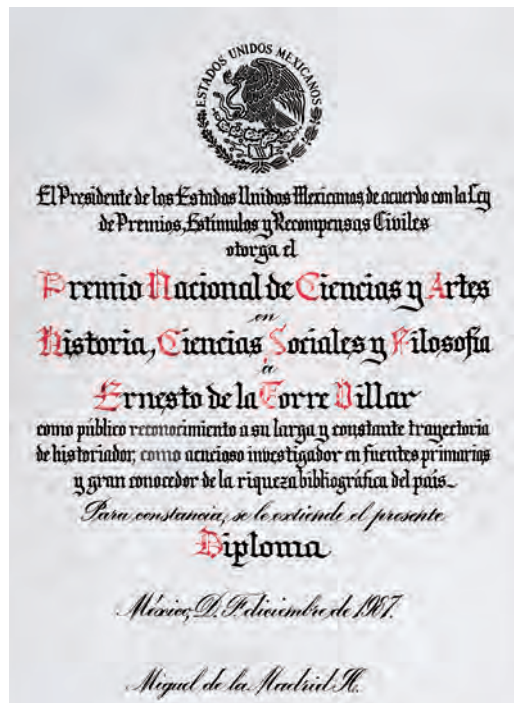 ESTADOS UNIDOS MEXICANOS
El Presidente de los Estados Unidos Mexicanos de acuerdo con la Ley
de Premios, Estímulos y Recompensas Civiles
otorga el
Premio Nacional de Ciencias y Artes
en
Historia, Ciencias Sociales y Filosofía
a
Ernesto de la Torre Villar
como público reconocimiento a su larga y constante trayectoria
de historiador, como acucioso investigador en fuentes primarias
y gran conocedor de la riqueza bibliográfica del país.
Para constancia, se le extiende el presente
Diploma
México, D. F. diciembre de 1987.
Miguel de la Madrid H.